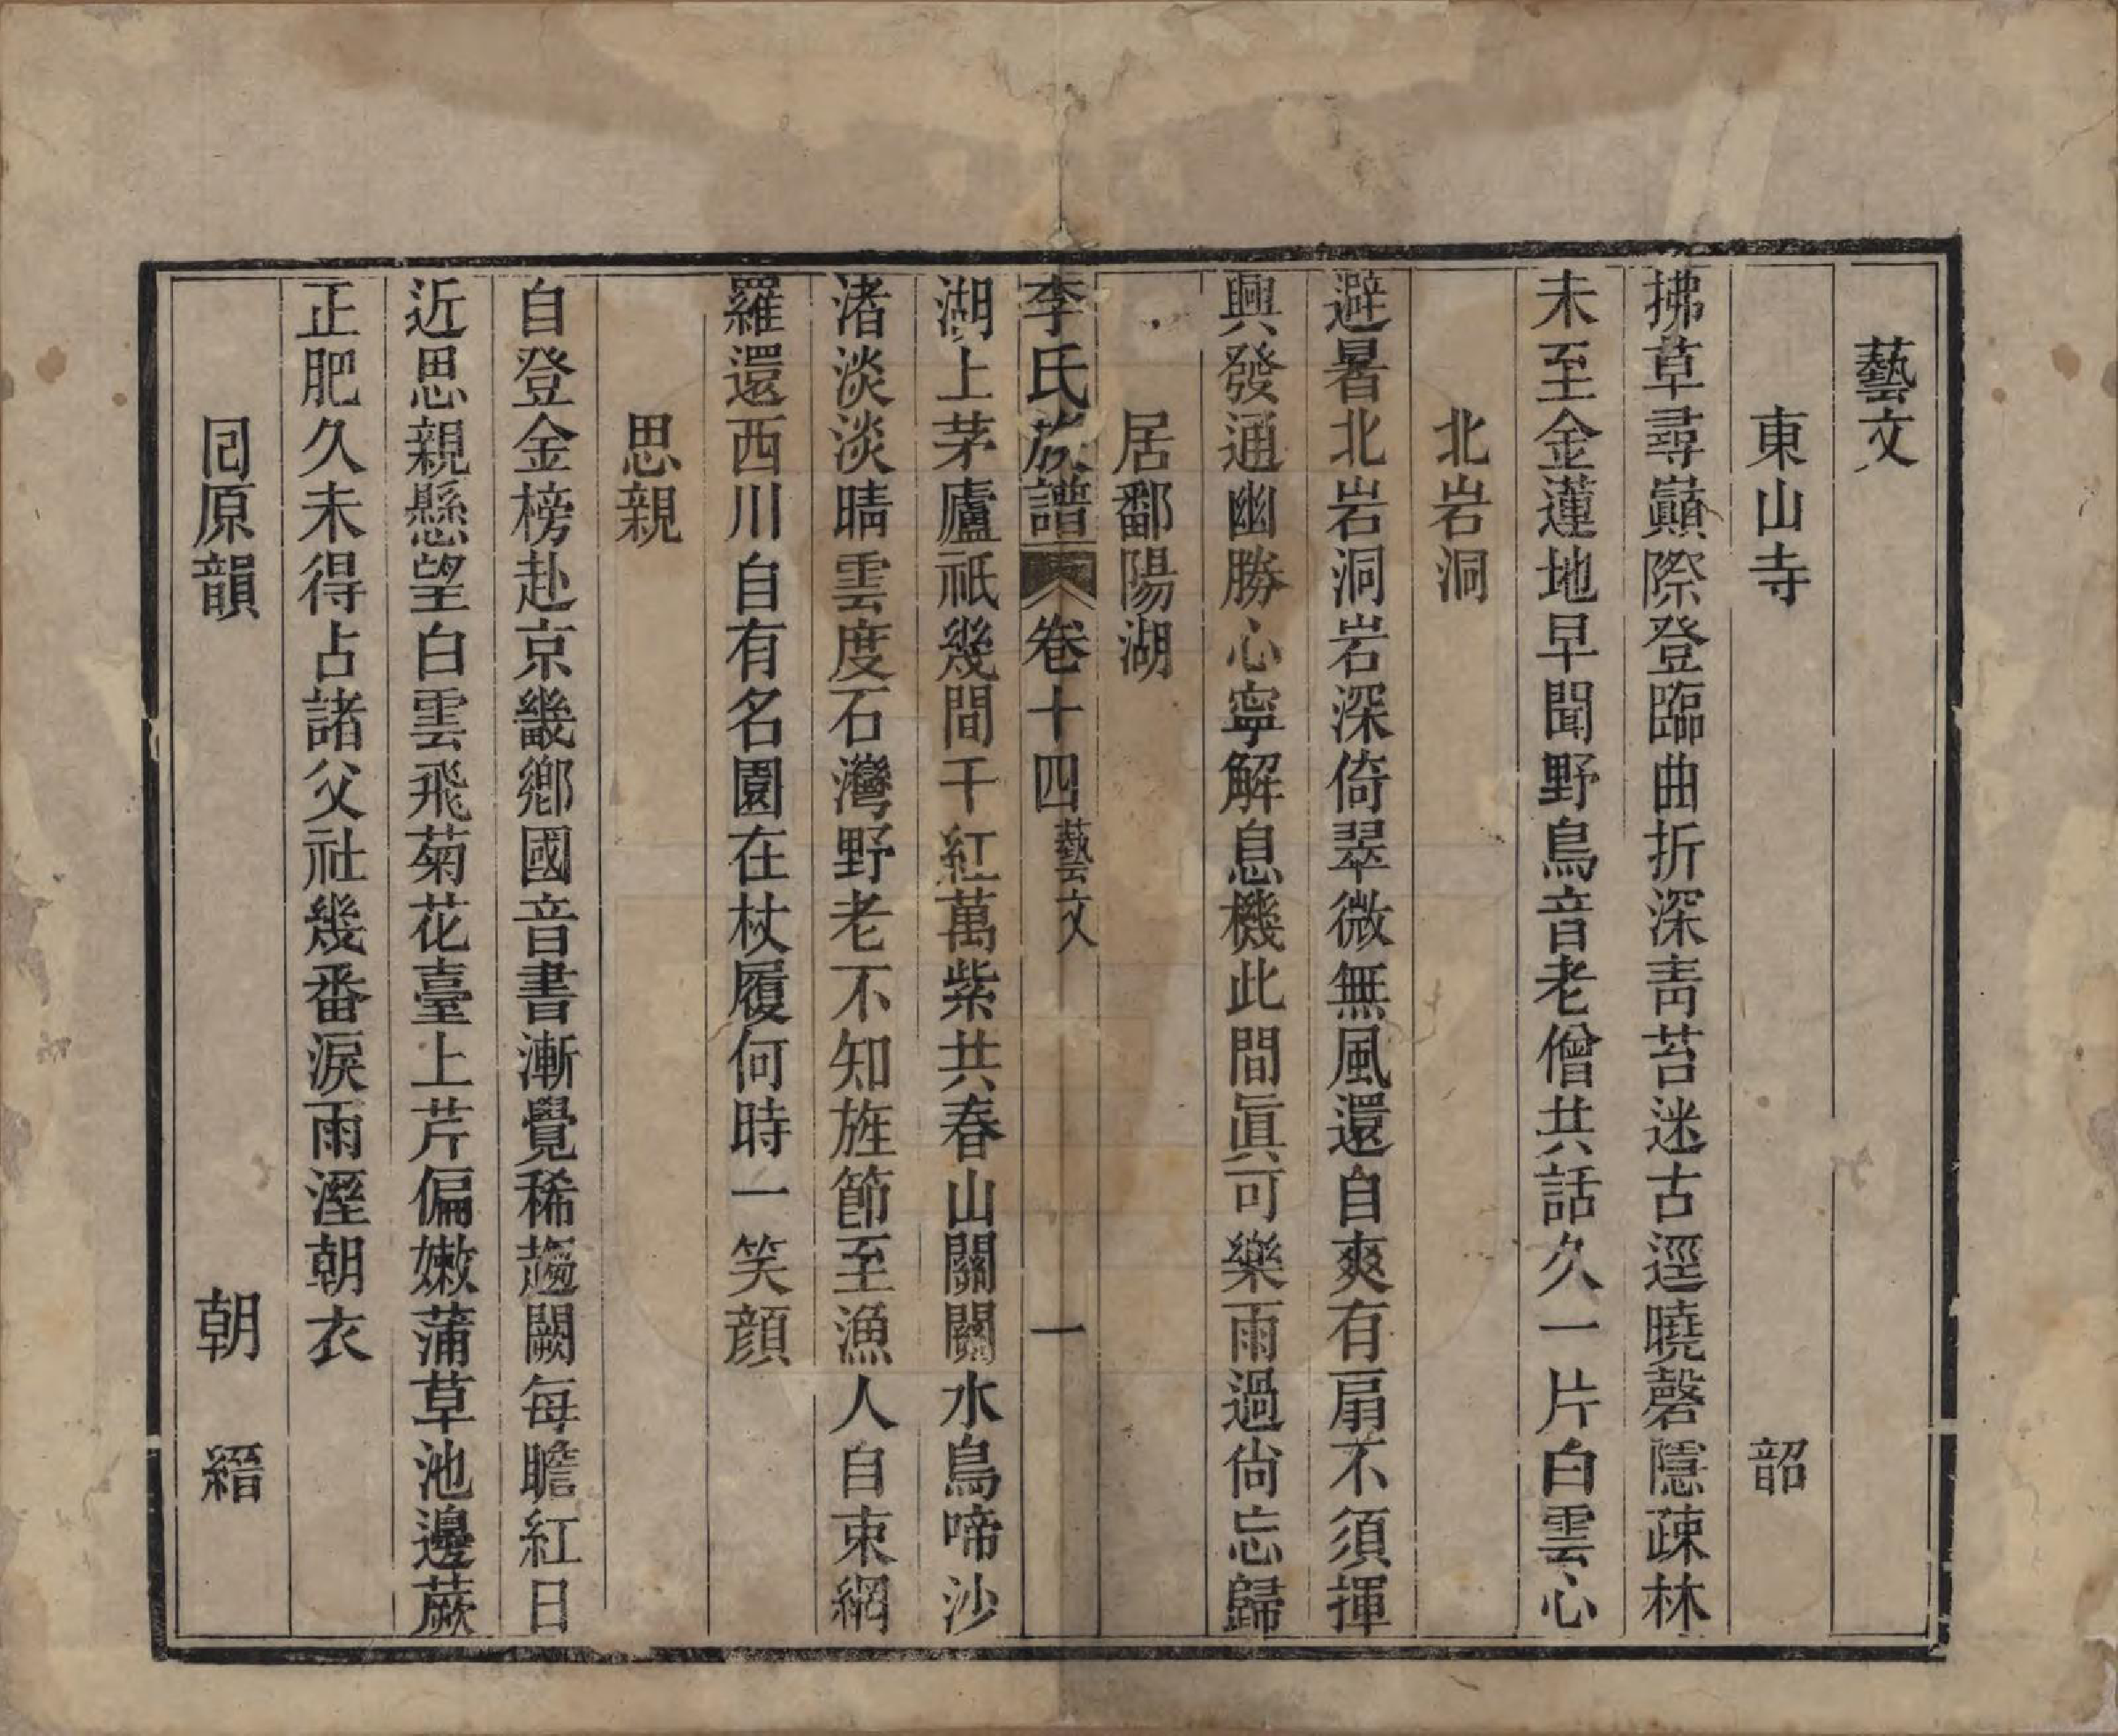 藝文
東山寺　韶
拂草尋巔際登臨曲折深青苔迷古逕曉磬隱疎林
未至金蓮地早聞野鳥音老僧共話久一片白雲心
北岩洞
避暑北岩洞岩深倚翠微無風還自爽有扇不須揮
興發通幽勝心寧解息機此間眞可樂雨過尙忘歸
居鄱陽湖
李氏族譜　卷十四　藝文　一
湖上茅廬祇幾間千紅萬紫共春山關關水鳥啼沙
渚淡淡晴雲度石灣野老不知旌節至漁人自束網
羅還西川自有名園在杖履何時一笑顔
思親
自登金榜赴京畿鄉國音書漸覺稀趨闕每瞻紅日
近思親懸望白雲飛菊花臺上芹偏嫩蒲草池邊蕨
正肥久未得占諸父社幾番淚雨溼朝衣
同原韻　朝縉